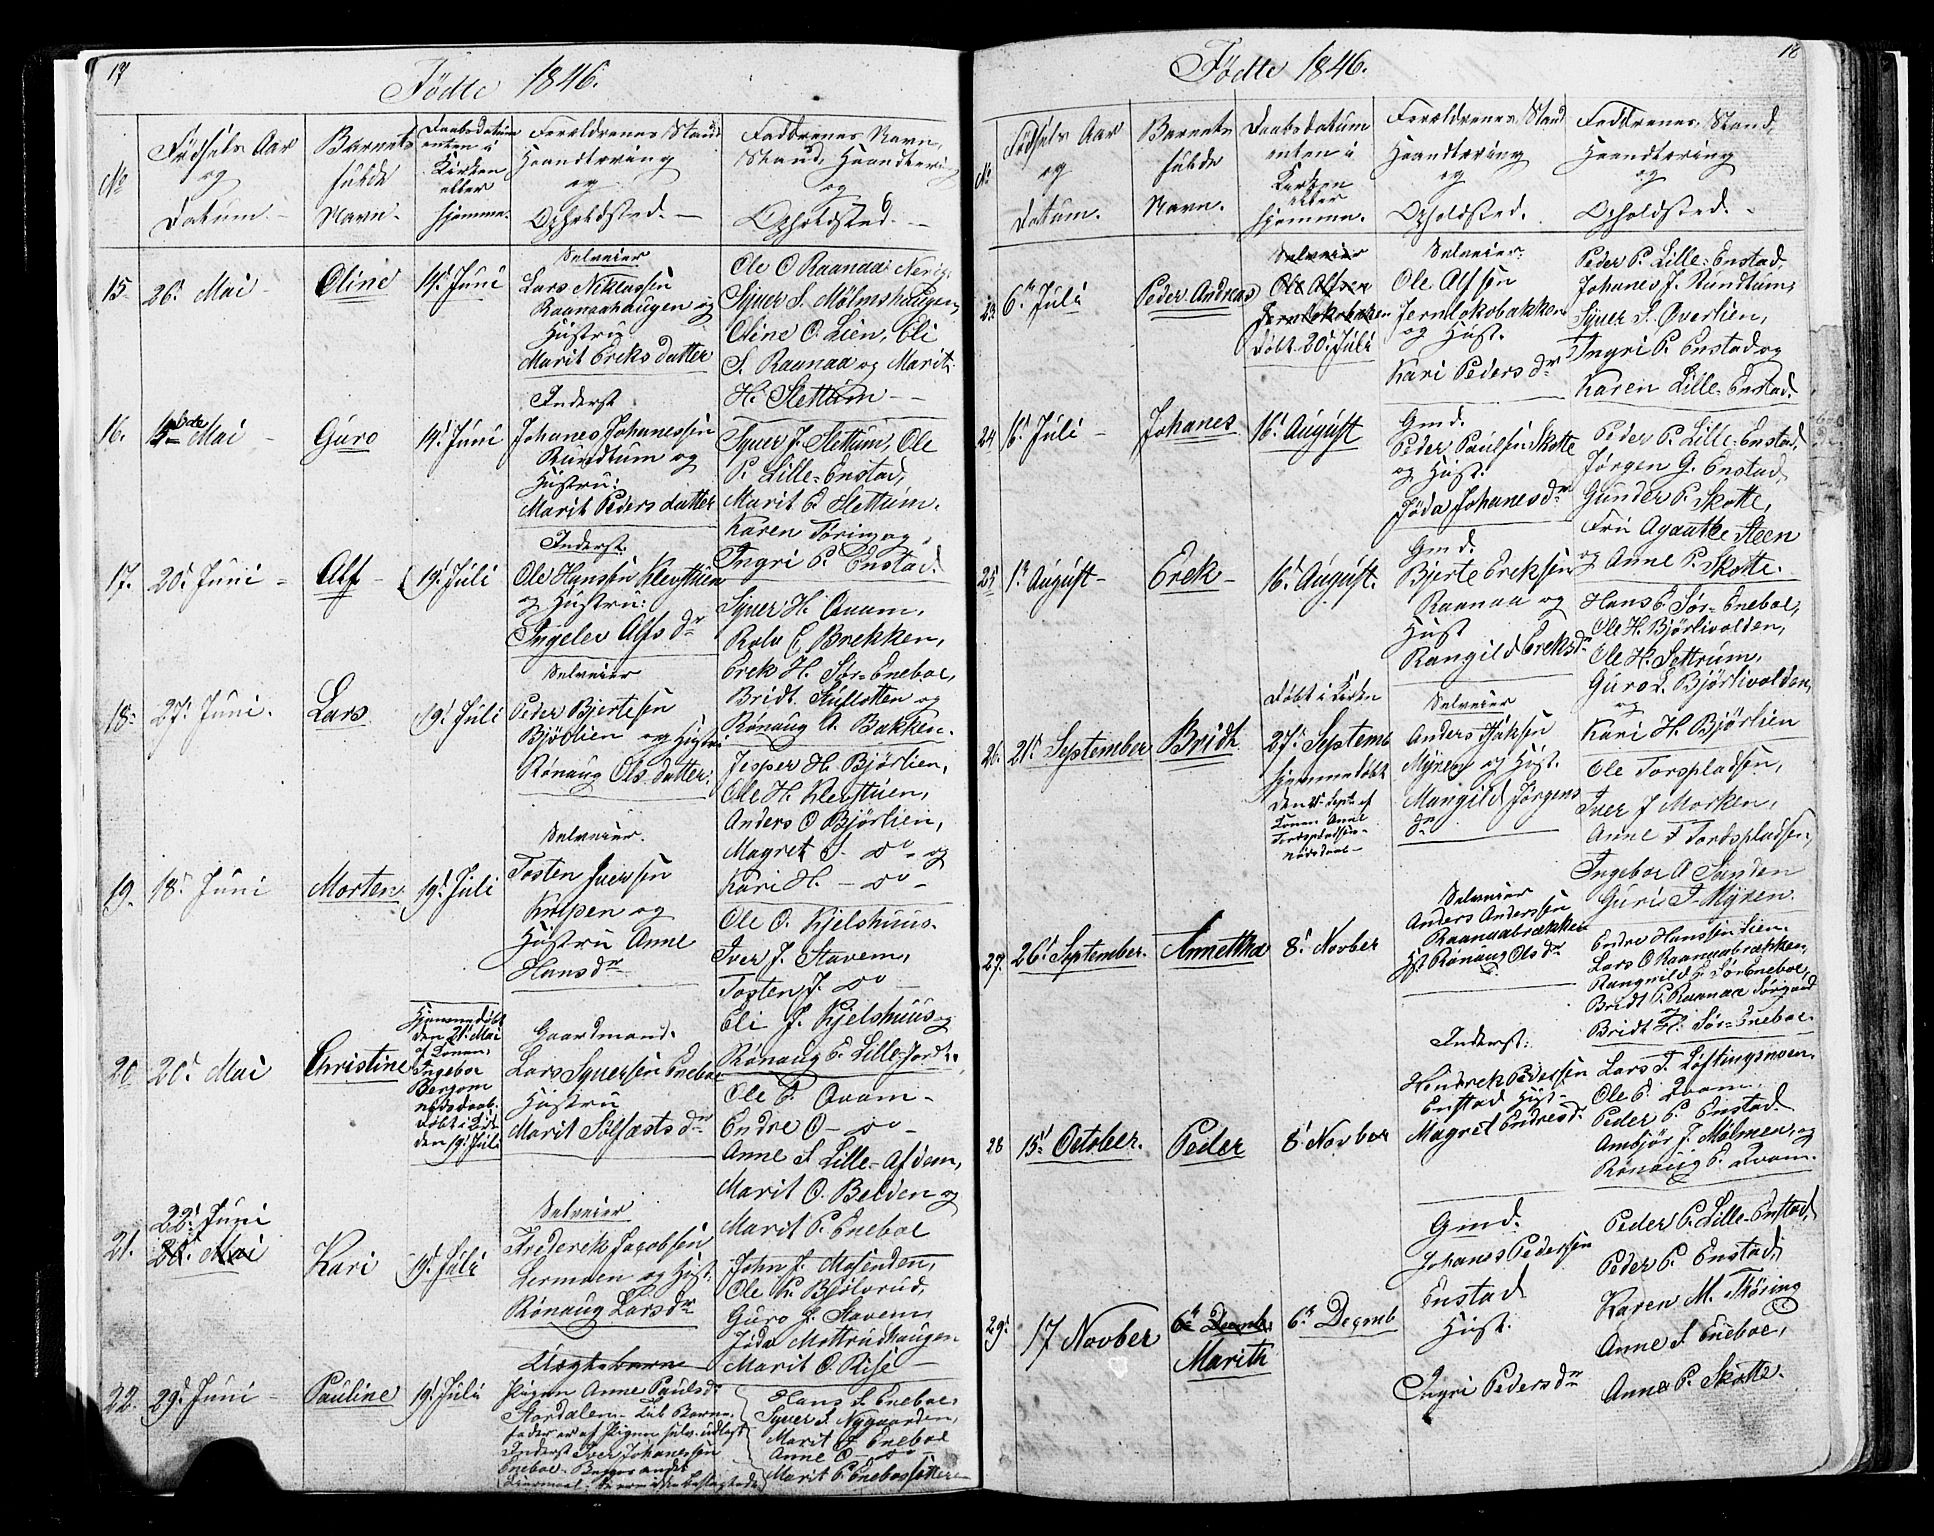 17
Fødte 1846.
No
Fødsels Aar
og
Datum.
Barnets
fulde
Navn.
Daabsdatum
enten i
Kirken
eller
hjemme.
Forældrenes Stand
Haandtæring
og
Opholdsted.
Faddrenes Navn,
Stand, Haandtæring
og
Opholdsted.
15.
26. Mai
Oline
14. Juni
Selveier
Lars Niklassen
Raanaahaugen og
Hustru
Marit Ereksdatter
Ole O Raanaa
Syver S. Mølmshaugen,
Oline O. Lien, Eli
S. Raanaa og Marit
H. Slettum
16.
Mai
Guro
14. Juni
Inderst
Johanes Johanessen
Rundtum og
Hustru:
Marit Pedersdatter
Syver J. Slettum, Ole
P. Lille-Enstad,
Marit O. Slettum.
Karen Tøring og
Ingri P. Enstad.
17.
20. Juni
Alf
19. Juli
Inderst.
Ole Hansen Klevstuen
og Hustru:
Ingelev Alfs dr
Syver H. Qvam,
Rolv E. Brekken,
Erek H. Sør-Eneboe,
Bridt Stuflotten og
Rønaug A. Bakken.
18.
27. Juni.
Lars
19. Juli
Selveier
Peder Bjertesen
Bjørlien og Hustru
Rønaug Olsdatter.
Jesper H. Bjørlien,
Ole H. Klevstuen,
Anders O Bjørlien,
Magret S. do og
Kari H. do
19.
18. Juni
Morten
19. Juli
Selveier.
Tosten Iversen
Kulpen og
Hustru Anne
Hansdr
Ole O. Kjelshuus.
Iver J. Stavem,
Tosten J. do
Eli J. Kjelshuus og
Rønaug E. Lille-Jordh.
20.
20. Mai
Christine
Hjemmedøbt
den 21. Mai
af Konen,
Ingebor
Bergom
nødsdaab.
døbt i Kirk
den 19. Juli
Gaardmand.
Lars Syversen Eneboe
Hustru
Marit Solfæsts dr
Ole P. Qvam
Endre O do
Anne S. Lille-Afdem,
Marit O. Belden og
Marit P. Eneboe
21.
22. Juni
Mai
Kari
19. Juli
Selveier
Frederek Jacobsen
Lermoen og Hust.
Rønaug Larsdr
John J. Mosenden,
Ole K. Bjølvrud,
Guro J. Stavem,
Jøda Mottrudhaugen
Marit O. Rise
22.
29. Juni
Pauline
19. Juli
Uægtebarn
Pigen Anne Paulsdr
Stordalen. Til Barne-
fader er af Pigen selv udlagt
Inderst Iver Johanessen
Eneboe.
Hans S. Eneboe,
Syver S. Nygaarden,
Marit J. Eneboe
Anne O do
Marit P. Eneboesætteren
18
Fødte 1846.
No
Fødsels Aar
og
Datum.
Barnets
fulde
Navn.
Daabsdatum
enten i
Kirken
eller
hjemme.
Forældrenes Stand
Haandtæring
og
Opholdsted.
Faddrenes Stand,
Haandtæring
og
Opholdsted.
23
6. Juli
Peder Andreas
Selveier
Ole Alfsen
Jernlokobakken
døbt 20. Juli
Selveier.
Ole Alfsen
Jernlokobakken
og Hust.
Kari Peders dr
Peder P. Lille-Enstad,
Johanes J. Rundtum,
Syver S. Øverlien,
Ingri P. Enstad og
Karen Lille-Enstad.
24
16. Juli
Johanes
16. August
Gmd.
Peder Paulsen Skotte
og Hust:
Jøda Johanesdr
Peder P. Lille-Enstad,
Jørgen G. Enstad,
Gunder P. Skotte,
Fru Agaathe Steen
og Anne P. Skotte.
25
1. August
Erek
16. August.
Gmd.
Bjerte Ereksen
Raanaa og
Hust
Rangild Ereksdr
Hans E. Sør-Eneboe,
Ole H. Bjørlivolden,
Ole H. Slettrum,
Guro L. Bjørlivolden,
og
Kari H. Bjørlien
26.
21. September
Bridt
Døbt i Kirken
27. Septemb
hjemmedøbt
den Sept. af
Konen Anne
Tordspladsen
nødsdaab
Selveier
Anders
Myren og Hust.
Mangild Jørgens
dr
Ole Torspladsen,
Iver J Morken,
Anne T Tordspladsen,
Ingebor A Sanden
Guri J. Myren.
27.
26. September.
Annethea
8. Novber
Selveier
Anders Anderssen
Raanaabrækken
Hst Rønaug Olsdr
Endre Hanssen Lien.
Lars O Raanaabrækken,
Rangnild E. Sør Eneboe,
Bridt P. Raanaa Sørgaard
og
Bridt H. Sør-Eneboe.
28
15. October.
Peder
8. Novber
Inderst:
Hendrek Pedersen
Enstad Hust
Magret Endresdr
Lars T. Løftingsmoen.
Ole P. Qvam.
Peder P. Enstad.
Ambjør J. Mølmen, og
Rønaug P. Qvam.
29.
17 Novber
6te Decmb.
Marith
6te Decmb
Gmd.
Johanes Pedersen
Enstad
Hust.
Ingri Peders dr
Peder P. Lille-Enstad,
Peder P. Enstad,
Karen M. Thøring
Anne S. Eneboe,
Anne P. Skotte.